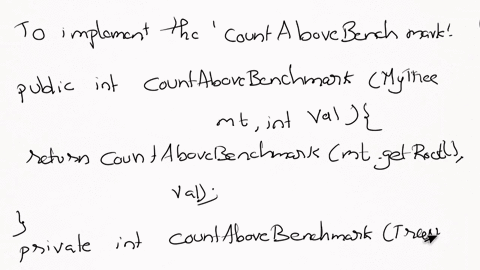 To implement the 'CountAboveBenchmark'.
public int CountAboveBenchmark (MyTree
mt, int Val){
return CountAboveBenchmark (mt.getRoot(),
val);
}
private int CountAboveBenchmark (Tree